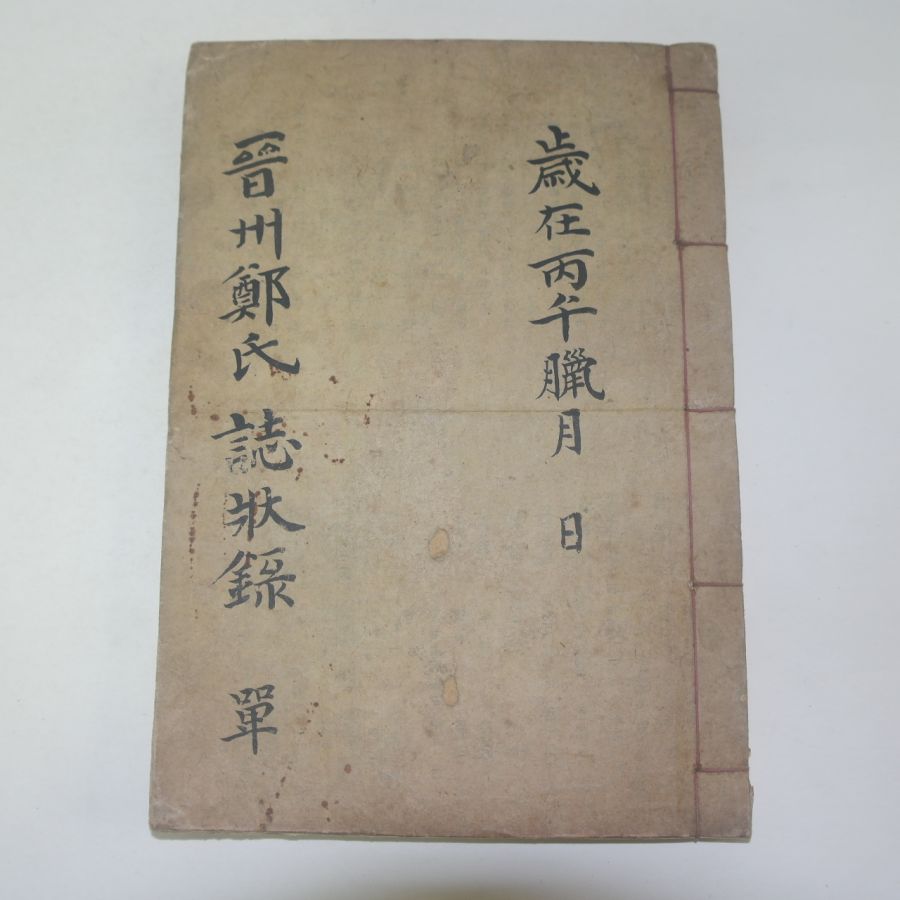 歲在丙午臘月 日
晉州鄭氏 誌狀錄 單